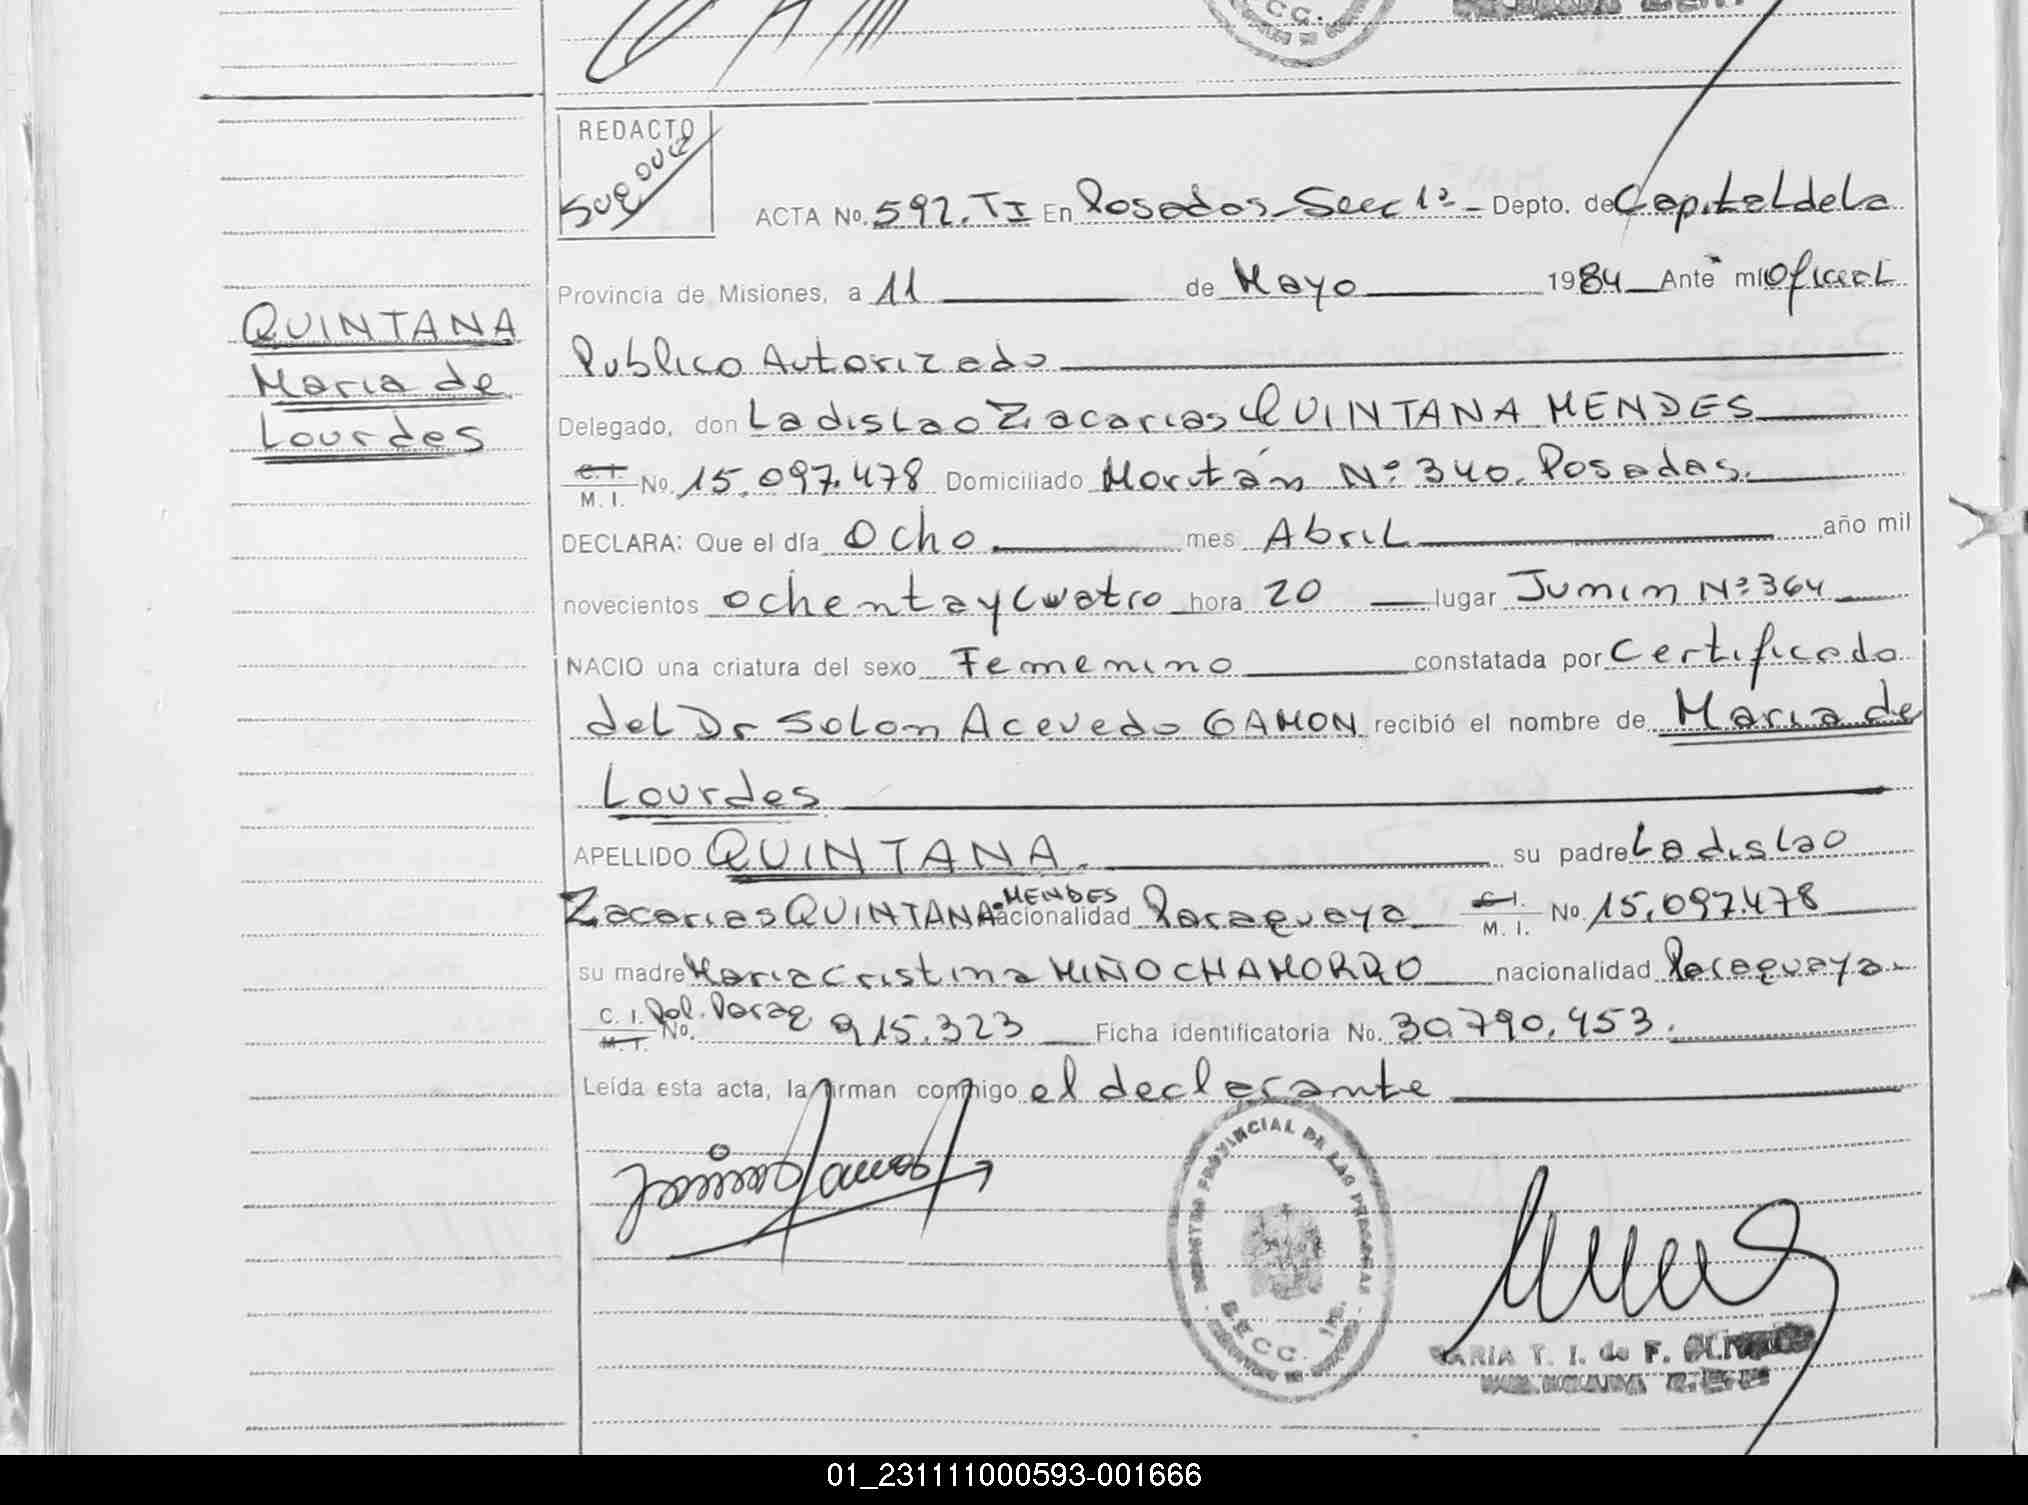 C.C.
REDACTO
ACTA No. 592. TI En Posadas Secc 1ª - Depto. de Capital de la
Provincia de Misiones, a 11 de Mayo 1984 Ante mí Oficial
QUINTANA
Maria de
Lourdes
Publico Autorizado
Delegado, don Ladislao Zacarias QUINTANA MENDES
C.I. M. I. No. 15.097.478 Domiciliado Moritán Nº 340. Posadas.
DECLARA: Que el día Ocho mes Abril año mil
novecientos ochenta y cuatro hora 20 lugar Junin Nº 364
NACIO una criatura del sexo Femenino constatada por Certificado
del Dr Solon Acevedo GAMON recibió el nombre de Maria de
Lourdes
APELLIDO QUINTANA. su padre Ladislao
Zacarias QUINTANA MENDES nacionalidad Paraguaya C.I. M. I. No. 15.097.478
su madre Maria Cristina MIÑO CHAMORRO nacionalidad Paraguaya
C. I. M. I. No. Pol. Parag 915.323 Ficha identificatoria No. 30.790.453.
Leída esta acta, la firman conmigo el declarante
REGISTRO PROVINCIAL DE LAS PERSONAS
SECC. 1ra.
MARIA T. I. de F.
01_231111000593-001666